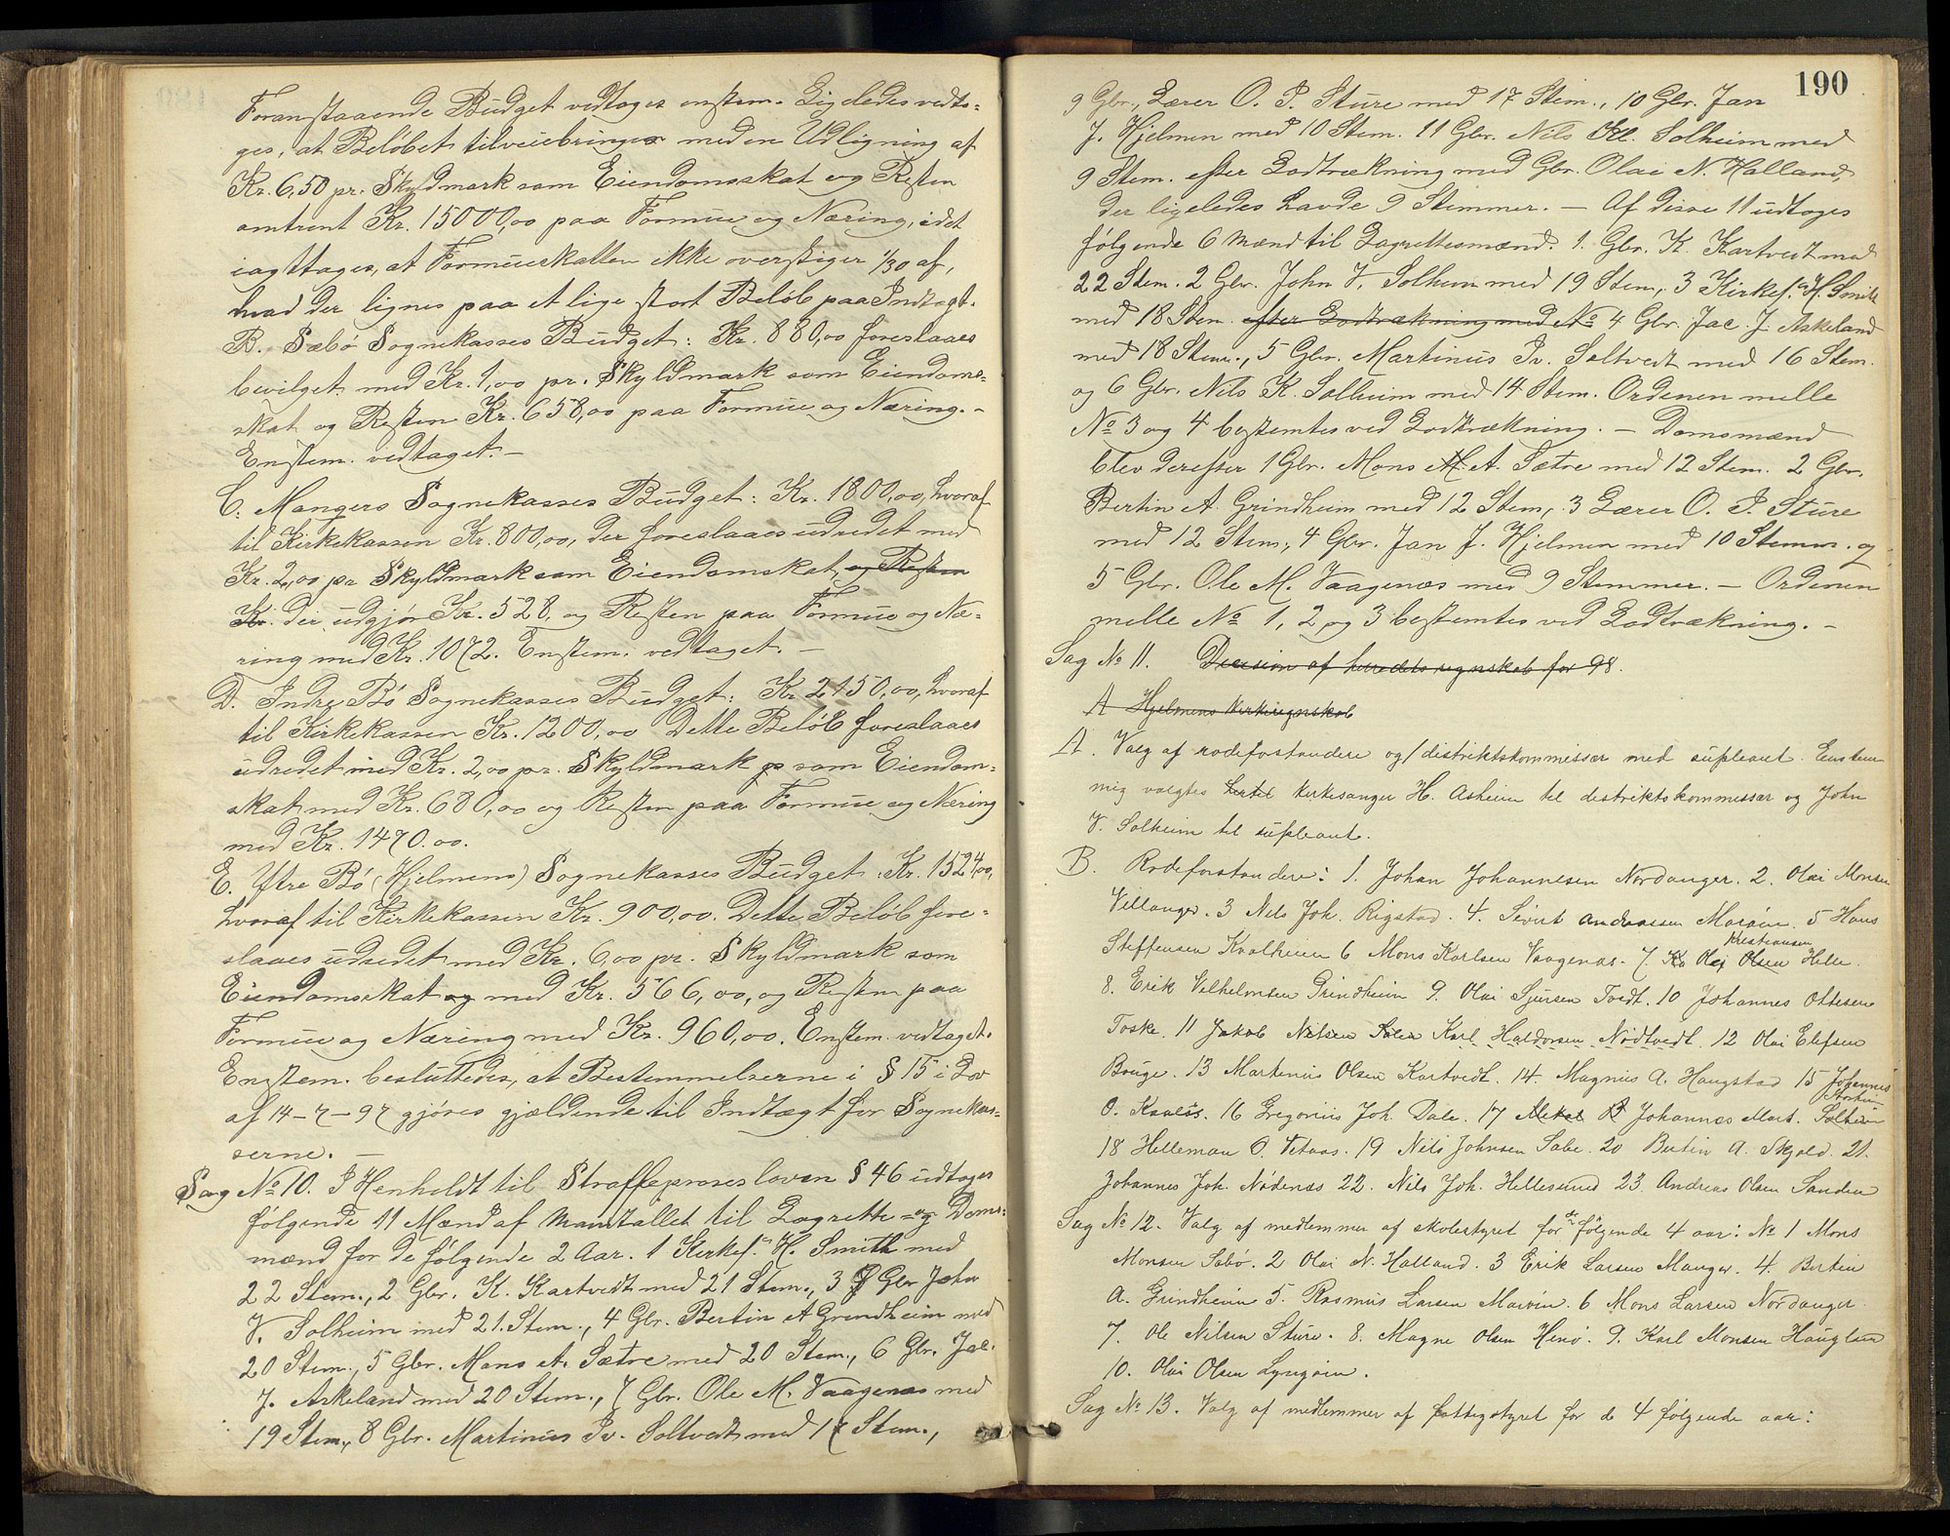 Foranstaaende Budget vedtoges enstem. Ligeledes vedto-
ges, at Beløbet tilveiebringes med en Udligning af
Kr. 6,50 pr. Skyldmark som Eiendomsskat og Resten
omtrent Kr. 15000,00 paa Formue og Næring, idet
iagttages, at Formueskatten ikke overstiger 1/30 af,
hvad der lignes paa et lige stort Beløb paa Indtægt.
B. Sæbø Sognekasses Budget: Kr. 880,00 foreslaaes
bevilget med Kr. 1,00 pr. Skyldmark som Eiendoms-
skat og Resten Kr. 658,00 paa Formue og Næring. -
Enstem. vedtaget. -
C. Mangers Sognekasses Budget: Kr. 1800,00, hvoraf
til Kirkekassen Kr. 800,00, der foreslaaes udredet med
Kr. 2,00 pr Skyldmark som Eiendomskat og Resten
Kr. der udgjør Kr. 528, og Resten paa Formue og Næ-
ring med Kr. 1072. Enstem. vedtaget. -
D. Indre Bø Sognekasses Budget: Kr. 2150,00, hvoraf
til Kirkekassen Kr. 1200,00 Dette Beløb foreslaaes
udredet med Kr. 2,00 pr. Skyldmark som Eiendom-
skat med Kr. 680,00 og Resten paa Formue og Næring
med Kr. 1470.00.
E. Ytre Bø (Hjelmens) Sognekasses Budget. Kr. 1524,00,
hvoraf til Kirkekassen Kr. 900,00. Dette Beløb fore-
slaaes udredet med Kr. 6,00 pr. Skyldmark som
Eiendomsskat og med Kr. 566,00, og Resten paa
Formue og Næring med Kr. 960,00. Enstem. vedtaget.
Enstem. besluttedes, at Bestemmelserne i § 15 i Lov
af 14-7-97 gjøres gjældende til Indtægt for Sognekas-
serne. -
Sag No 10. I Henholdt til Straffeproseslovens § 46 udtoges
følgende 11 Mænd af Mantallet til Lagrette- og Doms-
mænd for de følgende 2 Aar. 1 Kirkes. H. Smith med
22 Stem., 2 Gbr. K. Kartvedt med 21 Stem., 3 Gbr John
V. Solheim med 21. Stem., 4 Gbr. Bertin A Grindheim med
20 Stem., 5 Gbr. Mons A. Sætre med 20 Stem., 6 Gbr. Jac.
J. Askeland med 20 Stem., 7 Gbr. Ole M. Vaagenæs med
19 Stem., 8 Gbr. Martinus Iv. Soltvedt med 17 Stem.,
190
9 Gbr., Lærer O. P. Sture med 17 Stem., 10 Gbr. Jan
J. Hjelmen med 10 Stem. 11 Gbr. Nils Solheim med
9 Stem. efter Lodtrækning med Gbr. Olai N. Halland,
der ligeledes havde 9 Stemmer. - Af disse 11 udtoges
følgende 6 Mænd til Lagrettesmænd. 1. Gbr. K. Kartvedt med
22 Stem. 2 Gbr. John V. Solheim med 19 Stem., 3 Kirkes. H. Smith
med 18 Stem. efter Lodtrækning med No 4 Gbr. Jac. J. Askeland
med 18 Stem., 5 Gbr. Martinus Iv. Soltvedt med 16 Stem.
og 6 Gbr. Nils K. Solheim med 14 Stem. Ordenen melle
No 3 og 4 bestemtes ved Lodtrækning. - Domsmænd
blev derefter 1 Gbr. Mons A. Sætre med 12 Stem. 2 Gbr.
Bertin A. Grindheim med 12 Stem, 3 Lærer O. P. Sture
med 12 Stem., 4 Gbr. Jan J. Hjelmen med 10 Stemm. og
5 Gbr. Ole M. Vaagenæs med 9 Stemmer. - Ordenen
melle No 1, 2 og 3 bestemtes ved Lodtrækning. -
Sag No 11. Decision af herredets regnskab for 98.
A Hjelmens kirkeregnskab
A. Valg af rodeforstandere og distriktskommissær med supleant. Enstem
mig valgtes kirkesanger H. Asheim til distriktskommissær og John
V. Solheim til supleant.
B. Rodeforstandere: 1. Johan Johannesen Nordanger. 2. Olai Monsen
Villanger. 3 Nils Joh. Rigstad. 4. Sivert Andreasen Marøen. 5 Hans
Steffensen Kvalheim 6 Mons Karlsen Vaagenæs. 7. Olai Olsen Kristiansen Helle.
8. Erik Vilhelmsen Grindheim 9. Olai Sjursen Tvedt. 10 Johannes Ottesen
Toska. 11 Jakob Nilsen Karl Haldorsen Nødtvedt. 12 Olai Elefsen
Bauge. 13 Martinus Olsen Kartvedt. 14. Magnus A. Haugstad 15 Johannes
O. 16 Gregorius Joh. Dale. 17 Johannes Mart. Solheim
18 Helleman O. Vetaas. 19 Nils Johnsen Sabe. 20 Bertin A. Skjold. 21.
Johannes Joh. Nødenæs 22. Nils Joh. Hellesund 23. Andreas Olsen Sandøen
Sag No 12. Valg af medlemmer af skolestyret for de følgende 4 aar: No 1 Mons
Monsen Sabø. 2 Olai N. Halland. 3 Erik Larsen Manger. 4. Bertin
A. Grindheim 5. Rasmus Larsen Marøen. 6 Mons Larsen Nordanger
7. Ole Nilsen Sture. 8. Magne Olsen Henø. 9. Karl Monsen Hauglan
10. Olai Olsen Lyngøen.
Sag No 13. Valg af medlemmer af fattigstyret for de 4 følgende aar: